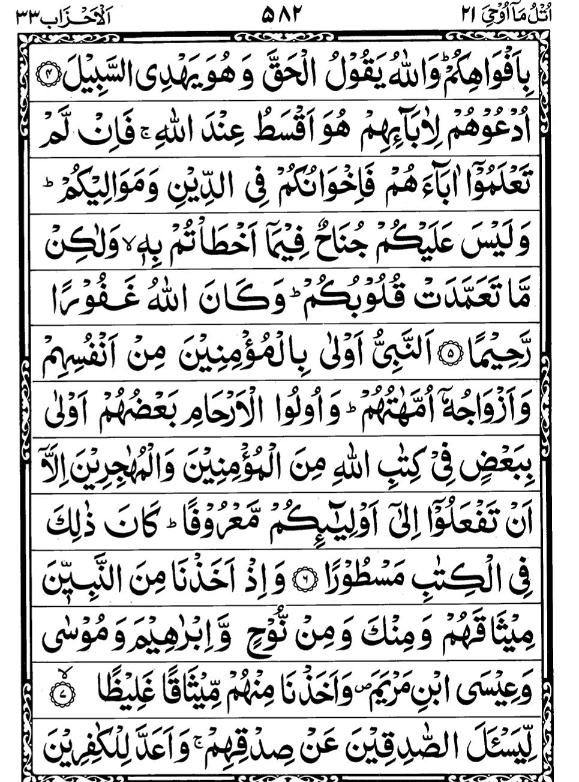 اُتْلُ مَآ اُوْحِيَ ٢١ ۵۸۲ اَلْاَحْزَاب ٣٣
بِاَفْوَاهِكُمْ ؕ وَاللّٰهُ يَقُوْلُ الْحَقَّ وَهُوَ يَهْدِى السَّبِيْلَ ﴿۴﴾
اُدْعُوْهُمْ لِاٰبَآئِهِمْ هُوَ اَقْسَطُ عِنْدَ اللّٰهِ ۚ فَاِنْ لَّمْ
تَعْلَمُوْۤا اٰبَآءَهُمْ فَاِخْوَانُكُمْ فِى الدِّيْنِ وَمَوَالِيْكُمْ ؕ
وَلَيْسَ عَلَيْكُمْ جُنَاحٌ فِيْمَاۤ اَخْطَاْتُمْ بِهٖ ۙ وَلٰكِنْ
مَّا تَعَمَّدَتْ قُلُوْبُكُمْ ؕ وَكَانَ اللّٰهُ غَفُوْرًا
رَّحِيْمًا ﴿۵﴾ اَلنَّبِىُّ اَوْلٰى بِالْمُؤْمِنِيْنَ مِنْ اَنْفُسِهِمْ
وَاَزْوَاجُهٗۤ اُمَّهٰتُهُمْ ؕ وَاُولُوا الْاَرْحَامِ بَعْضُهُمْ اَوْلٰى
بِبَعْضٍ فِىْ كِتٰبِ اللّٰهِ مِنَ الْمُؤْمِنِيْنَ وَالْمُهٰجِرِيْنَ اِلَّاۤ
اَنْ تَفْعَلُوْۤا اِلٰٓى اَوْلِيٰٓئِكُمْ مَّعْرُوْفًا ؕ كَانَ ذٰلِكَ
فِى الْكِتٰبِ مَسْطُوْرًا ﴿۶﴾ وَاِذْ اَخَذْنَا مِنَ النَّبِيّٖنَ
مِيْثَاقَهُمْ وَمِنْكَ وَمِنْ نُّوْحٍ وَّاِبْرٰهِيْمَ وَمُوْسٰى
وَعِيْسَى ابْنِ مَرْيَمَ ۪ وَاَخَذْنَا مِنْهُمْ مِّيْثَاقًا غَلِيْظًا ﴿۷﴾ ۙ
لِّيَسْئَلَ الصّٰدِقِيْنَ عَنْ صِدْقِهِمْ ۚ وَاَعَدَّ لِلْكٰفِرِيْنَ